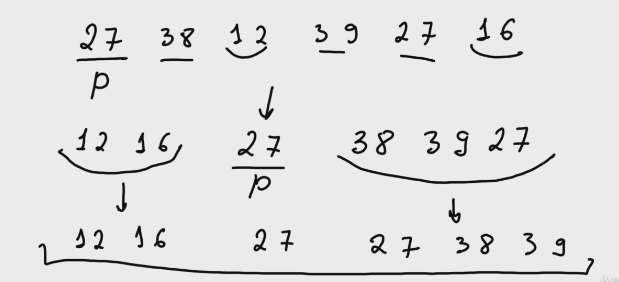 27 38 12 39 27 16
p
12 16 27 38 39 27
p
12 16 27 27 38 39